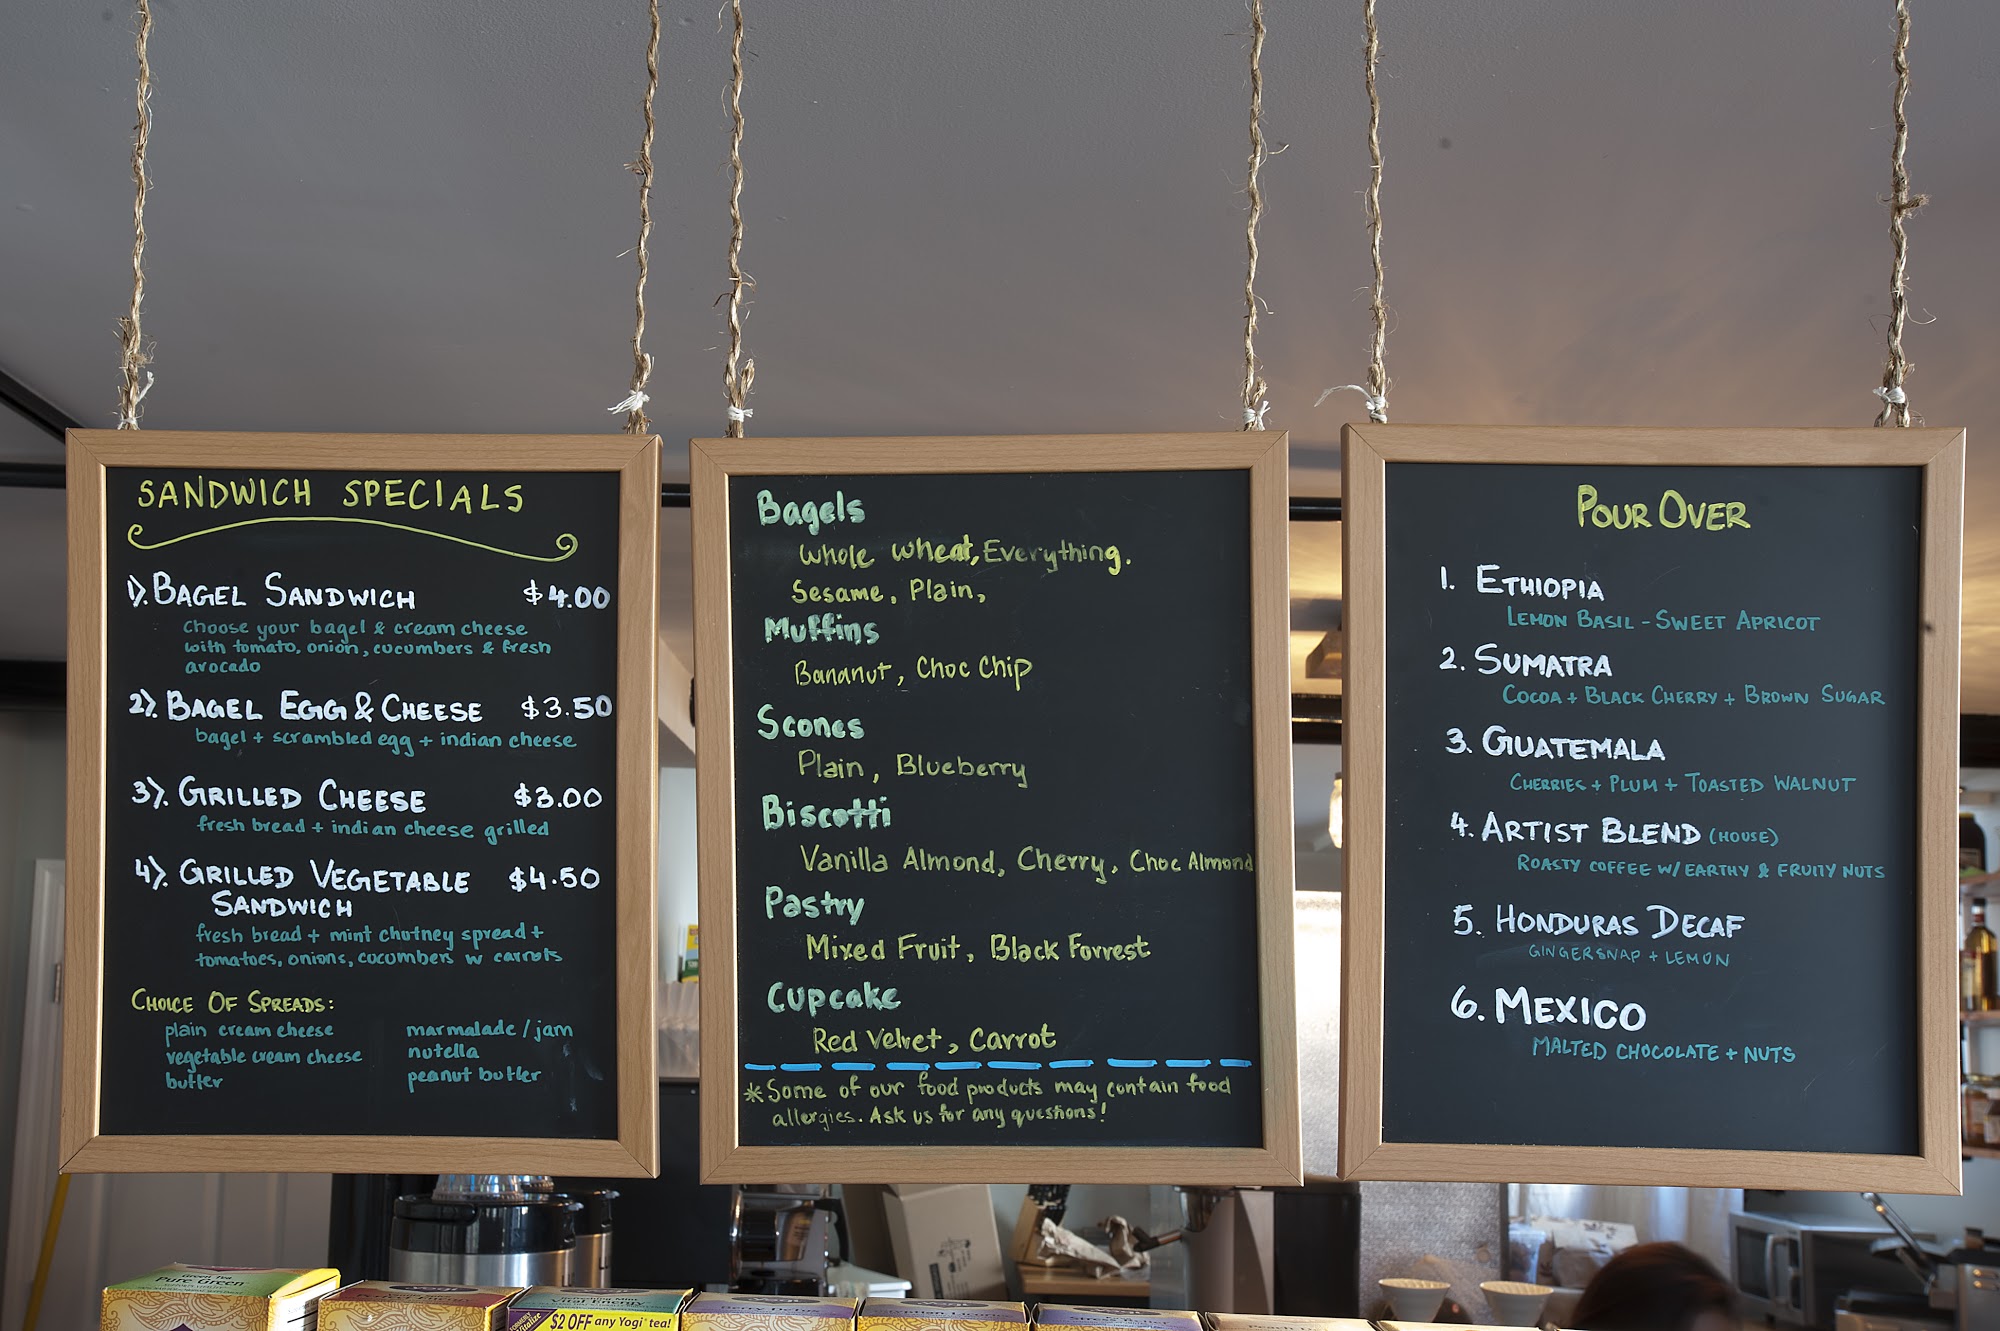 SANDWICH SPECIALS
1). BAGEL SANDWICH $4.00
Choose your bagel & cream cheese
with tomato, onion, cucumbers & fresh
avocado
2). BAGEL EGG & CHEESE $3.50
bagel + scrambled egg + indian cheese
3). GRILLED CHEESE $3.00
fresh bread + indian cheese grilled
4). GRILLED VEGETABLE $4.50
SANDWICH
fresh bread + mint chutney spread +
tomatoes, onions, cucumbers w carrots
CHOICE OF SPREADS:
plain cream cheese
vegetable cream cheese
butter
marmalade / jam
nutella
peanut butter
Bagels
Whole wheat, Everything.
Sesame, Plain,
Muffins
Bananut, Choc Chip
Scones
Plain, Blueberry
Biscotti
Vanilla Almond, Cherry, Choc Almond
Pastry
Mixed Fruit, Black Forrest
Cupcake
Red Velvet, Carrot
*Some of our food products may contain food
allergies. Ask us for any questions!
POUR OVER
1. ETHIOPIA
LEMON BASIL - SWEET APRICOT
2. SUMATRA
COCOA + BLACK CHERRY + BROWN SUGAR
3. GUATEMALA
CHERRIES + PLUM + TOASTED WALNUT
4. ARTIST BLEND (HOUSE)
ROASTY COFFEE W/ EARTHY & FRUITY NUTS
5. HONDURAS DECAF
GINGERSNAP + LEMON
6. MEXICO
MALTED CHOCOLATE + NUTS
Green Tea
Pure Green
Vital Energy
$2 OFF any Yogi tea!
Berry DeTox